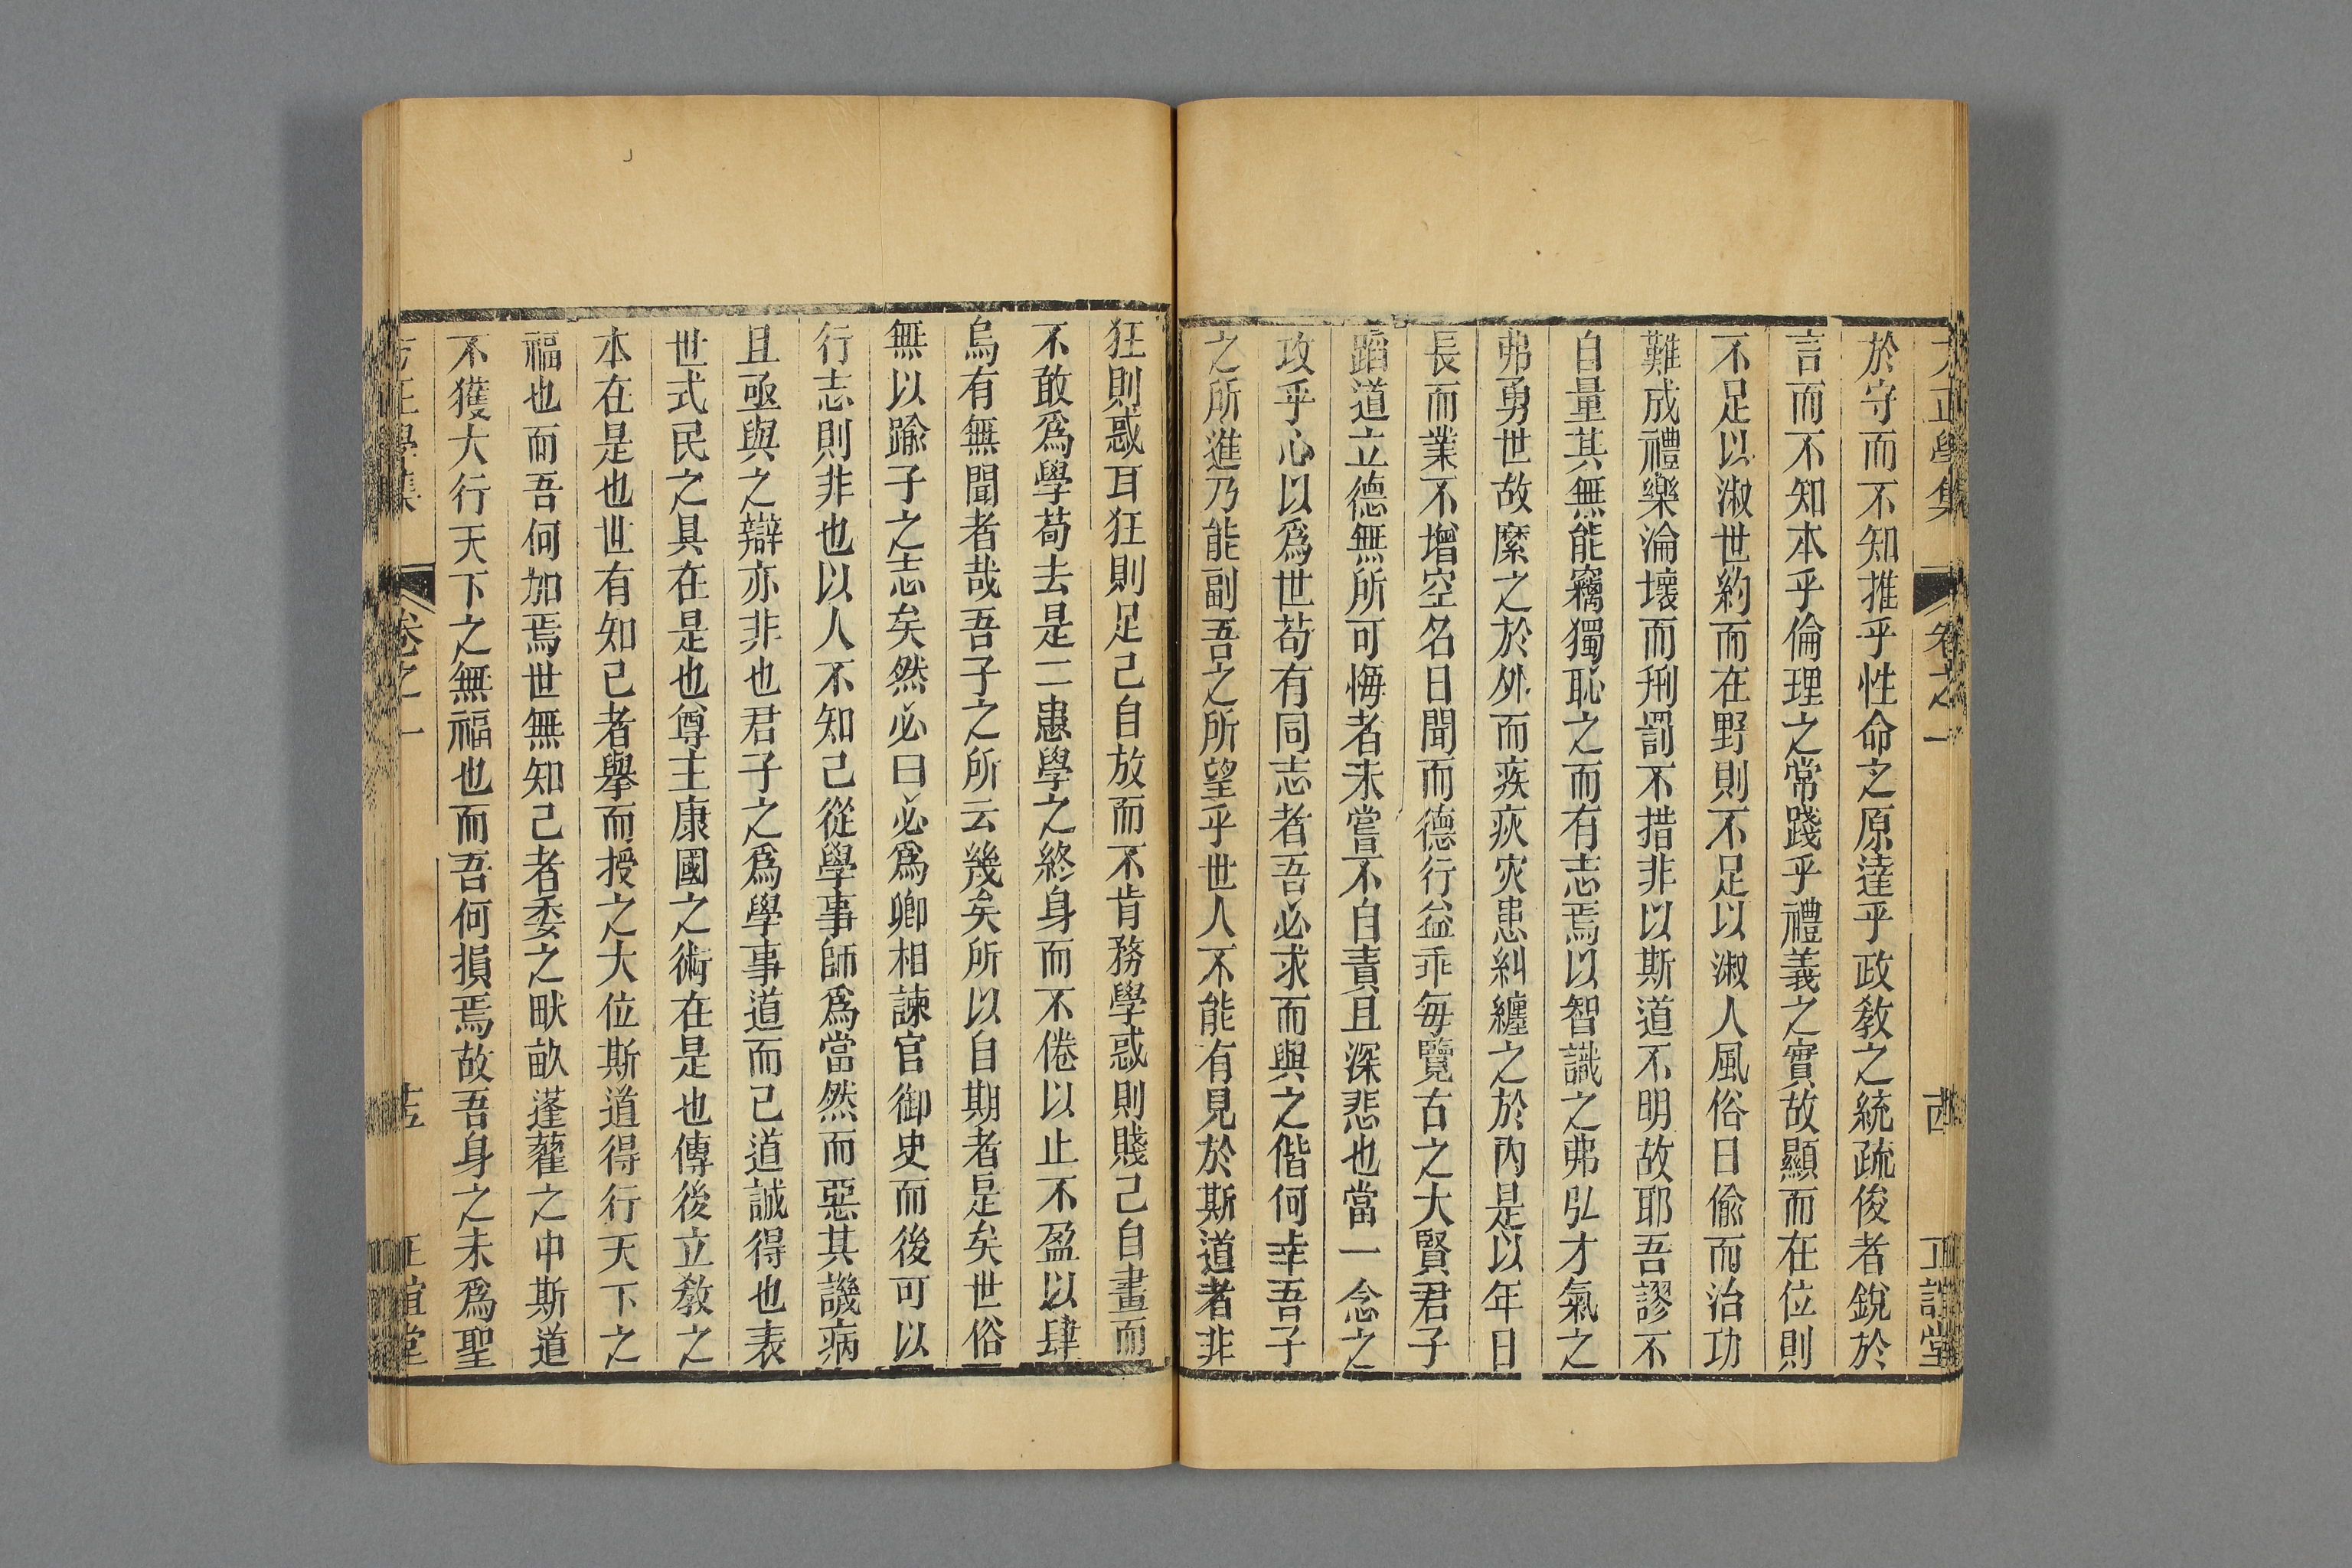 正學集 卷之一 正誼堂
於守而不知推乎性命之原達乎政敎之統疏俊者銳於
言而不知本乎倫理之常踐乎禮義之實故顯而在位則
不足以淑世約而在野則不足以淑人風俗日偷而治功
難成禮樂淪壞而刑罰不措非以斯道不明故耶吾謬不
自量其無能竊獨恥之而有志焉以智識之弗弘才氣之
弗勇世故縻之於外而疾疢灾患糾纏之於內是以年日
長而業不增空名日聞而德行益乖每覽古之大賢君子
蹈道立德無所可悔者未嘗不自責且深悲也當一念之
攻乎心以爲世苟有同志者吾必求而與之偕何幸吾子
之所進乃能副吾之所望乎世人不能有見於斯道者非
狂則惑耳狂則足己自放而不肯務學惑則賤己自畫而
不敢爲學苟去是二患學之終身而不倦以止不盈以肆
烏有無聞者哉吾子之所云幾矣所以自期者是矣世俗
無以踰子之志矣然必曰必爲卿相諫官御史而後可以
行志則非也以人不知己從學事師爲當然而惡其譏病
且亟與之辯亦非也君子之爲學事道而已道誠得也表
世式民之具在是也尊主康國之術在是也傳後立敎之
本在是也世有知己者舉而授之大位斯道得行天下之
福也而吾何加焉世無知己者委之畎畝蓬藋之中斯道
不獲大行天下之無福也而吾何損焉故吾身之未爲聖
正學集 卷之一 正誼堂